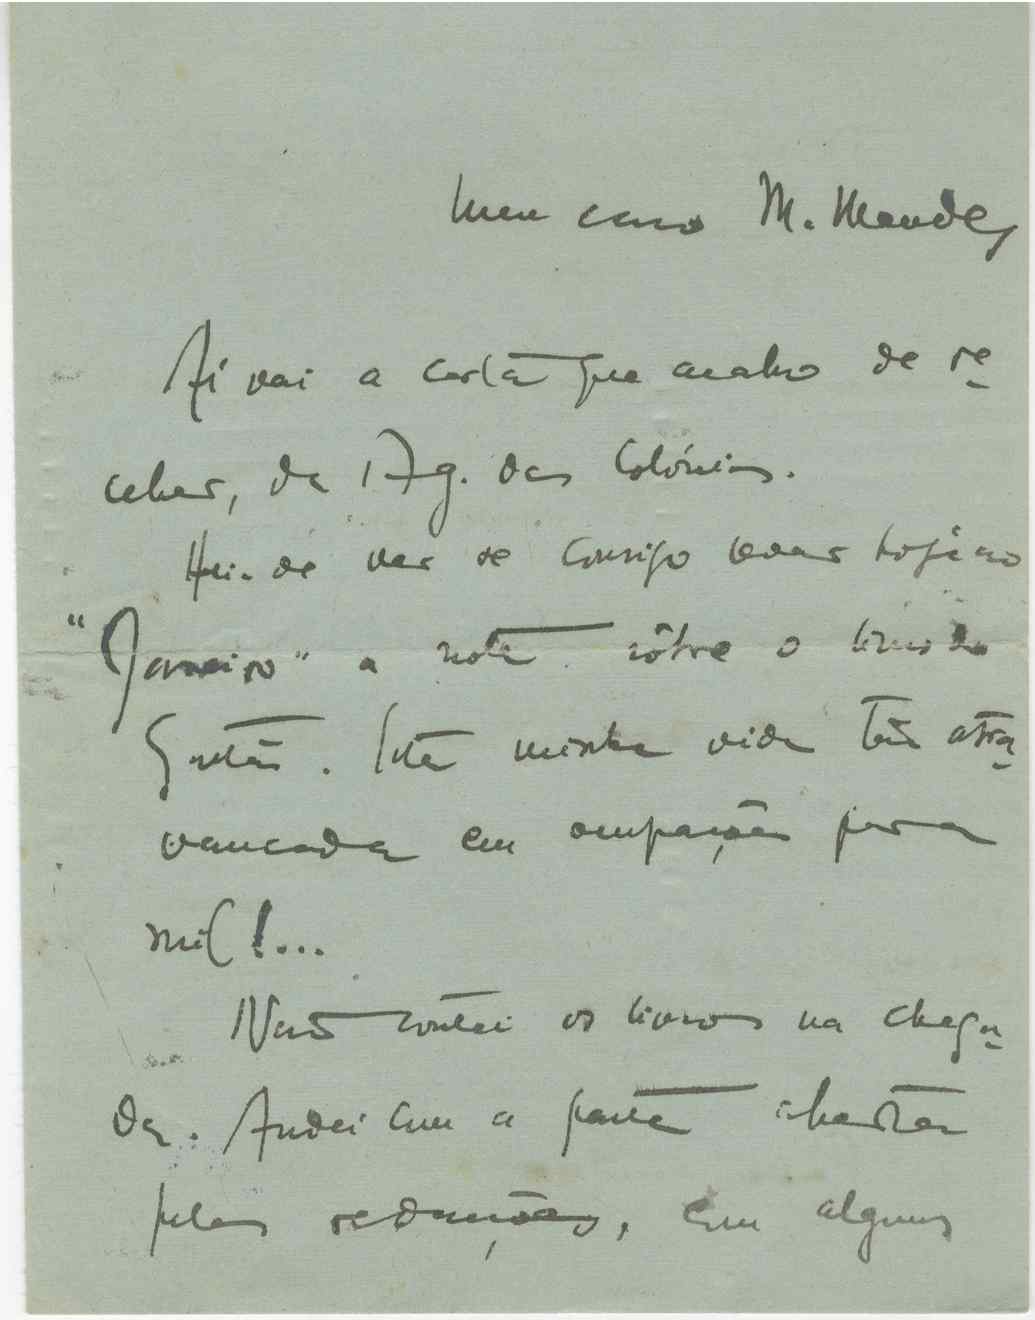 Meu caro M. Mendes
Aí vai a carta que acabo de re-
ceber, da Ag. das Colónias.
Hei-de ver se consigo levar hoje ao
"Janeiro" a nota sôbre o livro do
Gastão. Esta minha vida tão atra-
vancada em ocupações para
mil!...
Não contei os livros na chega-
da. Andei com a pasta aberta
pelas redacções, em algumas